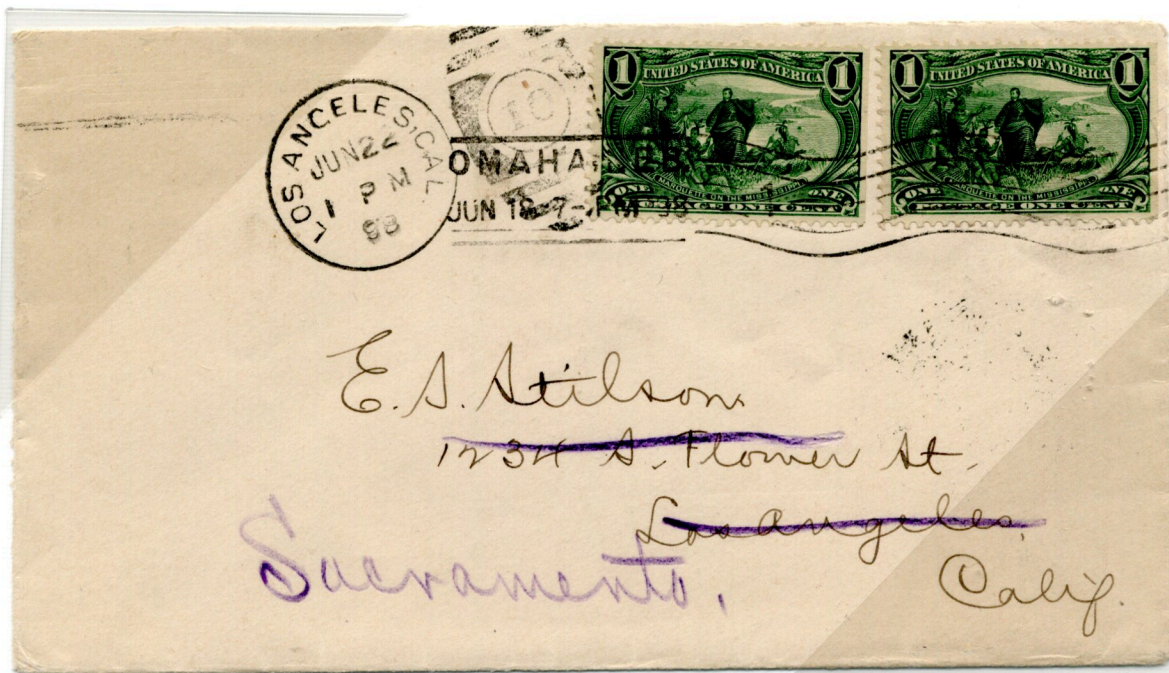 LOS ANGELES, CAL
JUN 22
1 P M
98
10
OMAHA
JUN 18 7- PM 98
1 UNITED STATES OF AMERICA 1
MARQUETTE ON THE MISSISSIPPI
ONE ONE
POSTAGE ONE CENT
1 UNITED STATES OF AMERICA 1
MARQUETTE ON THE MISSISSIPPI
ONE ONE
POSTAGE ONE CENT
E. S. Stilson
1234 S. Flower St.
Los Angeles,
Sacramento.
Calif.